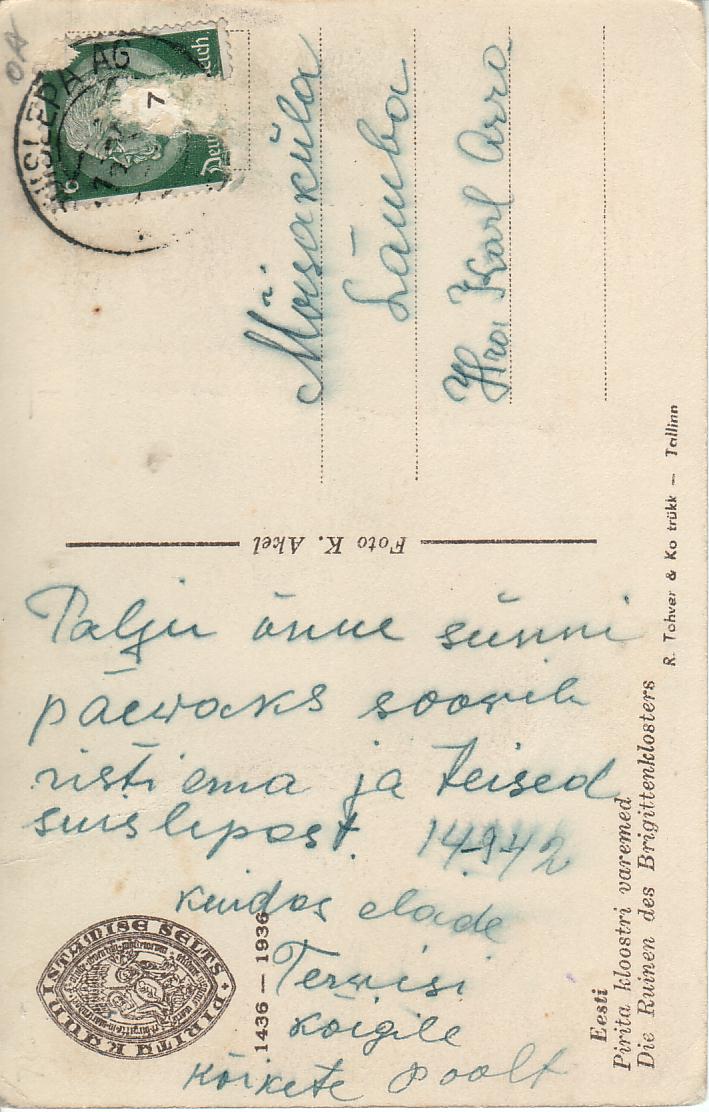 SUISLEPA AG
6
Deu
eich
7
Mõisaküla
Lämba
Hra. Karl Arro
Foto K. Akel
Palju õnne sünni
päewaks soowib
risti ema ja teised
suislepast. 14-9-42
kuidas elade
Terwisi
kõigile
kõikete poolt
PIRITA KAUNISTAMISE SELTS
1436 — 1936
Eesti
Pirita kloostri varemed
Die Ruinen des Brigittenklosters
R. Tohver & Ko trükk — Tallinn